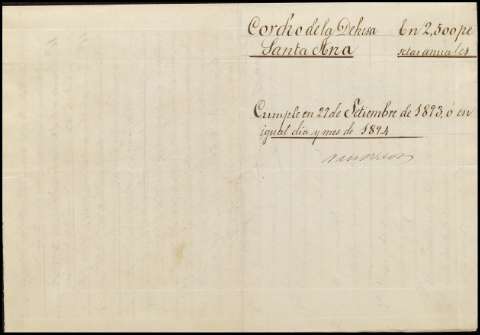 Corcho de la Dehesa
Santa Ana
En 2,500 pe
setas anuales
Cumple en 29 de Setiembre de 1893, ó en
igual dia y mes de 1894